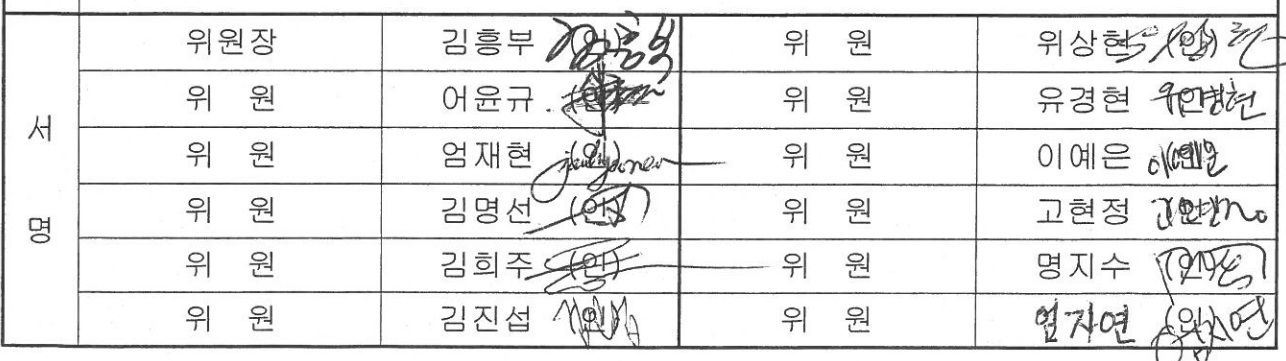 위원장 김흥부 (인) 위 원 위상현 (인)
위 원 어윤규 (인) 위 원 유경현 (인)
서 위 원 엄재현 (인) 위 원 이예은 (인)
명 위 원 김명선 (인) 위 원 고현정 (인)
위 원 김희주 (인) 위 원 명지수 (인)
위 원 김진섭 (인) 위 원 엄지연 (인)